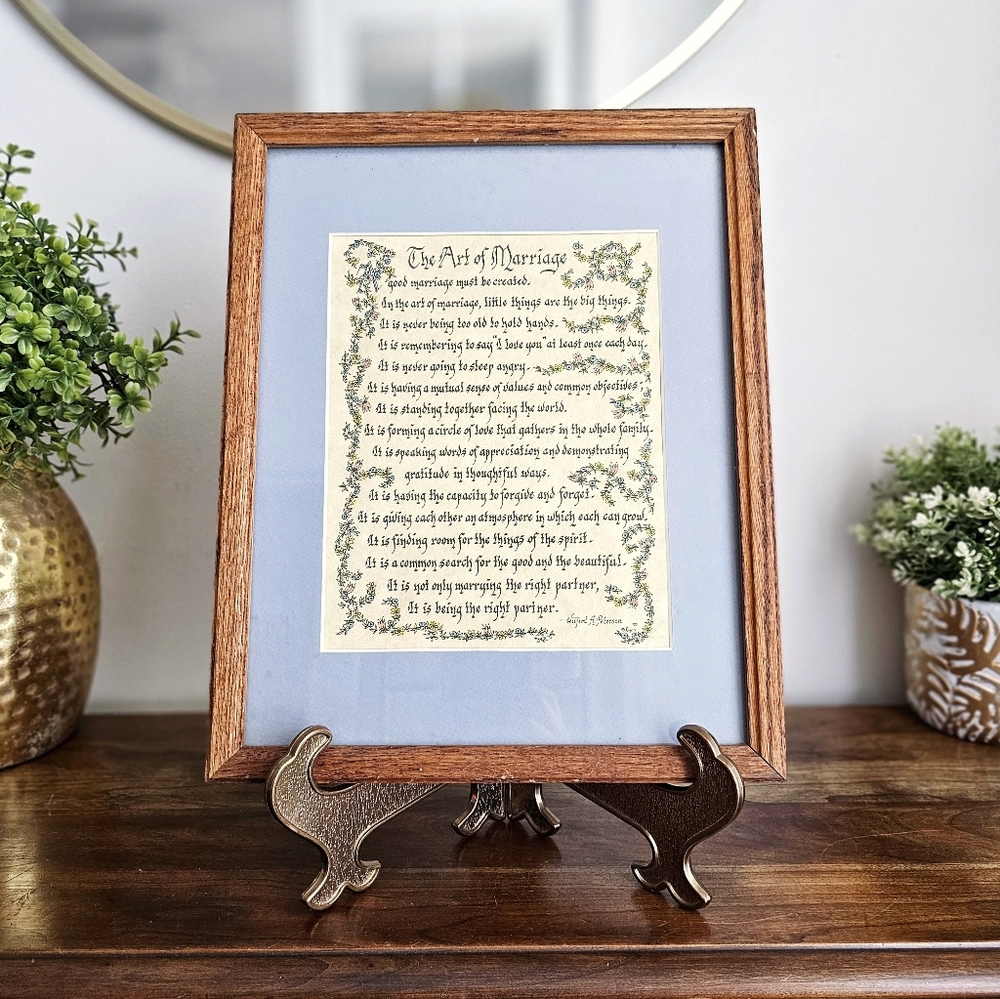 The Art of Marriage
A good marriage must be created.
In the art of marriage, little things are the big things.
It is never being too old to hold hands.
It is remembering to say "I love you" at least once each day.
It is never going to sleep angry.
It is having a mutual sense of values and common objectives;
It is standing together facing the world.
It is forming a circle of love that gathers in the whole family.
It is speaking words of appreciation and demonstrating
gratitude in thoughtful ways.
It is having the capacity to forgive and forget.
It is giving each other an atmosphere in which each can grow.
It is finding room for the things of the spirit.
It is a common search for the good and the beautiful.
It is not only marrying the right partner,
It is being the right partner.
Wilferd A. Peterson